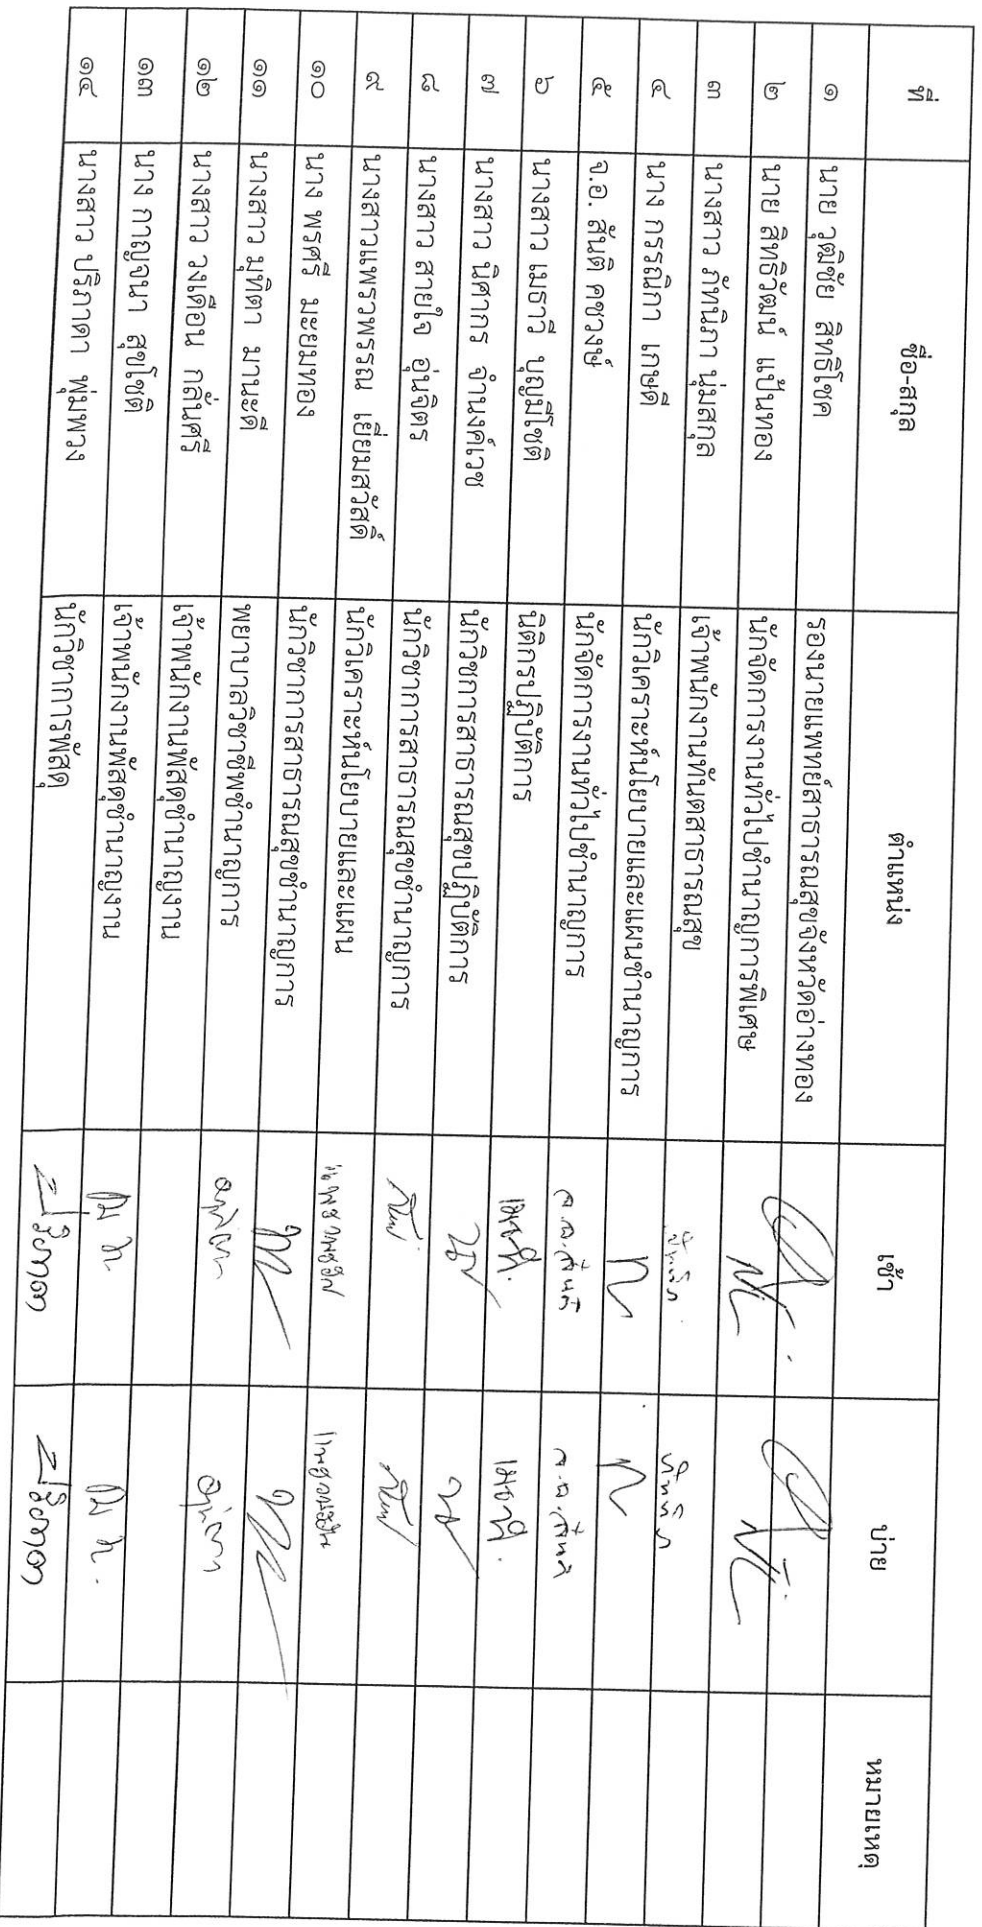 ที่ ชื่อ-สกุล ตำแหน่ง เช้า บ่าย หมายเหตุ
๑ นาย วุฒิชัย สิทธิโชค รองนายแพทย์สาธารณสุขจังหวัดอ่างทอง
๒ นาย สิทธิวัฒน์ แป้นทอง นักจัดการงานทั่วไปชำนาญการพิเศษ
๓ นางสาว ภัทนิภา นุ่มสกุล เจ้าพนักงานทันตสาธารณสุข
๔ นาง กรรณิกา เกษดี นักวิเคราะห์นโยบายและแผนชำนาญการ
๕ จ.อ. สันติ คชวงษ์ นักจัดการงานทั่วไปชำนาญการ จ.อ.สันติ จ.อ.สันติ
๖ นางสาว เมธาวี บุญมีโชติ นิติกรปฏิบัติการ
๗ นางสาว นิศากร จำนงค์เวช นักวิชการสาธารณสุขปฏิบัติการ
๘ นางสาว สายใจ อุ่นจิตร นักวิชาการสาธารณสุขชำนาญการ
๙ นางสาวแพรวพรรณ เยี่ยมสวัสดิ์ นักวิเคราะห์นโยบายและแผน
๑๐ นาง พรศรี มะยมทอง นักวิชาการสาธารณสุขชำนาญการ
๑๑ นางสาว มุทิตา มานะดี พยาบาลวิชาชีพชำนาญการ
๑๒ นางสาว วงเดือน กลั่นศรี เจ้าพนักงานพัสดุชำนาญงาน
๑๓ นาง กาญจนา สุขโชติ เจ้าพนักงานพัสดุชำนาญงาน
๑๔ นางสาว ปริภาดา พุ่มพวง นักวิชาการพัสดุ